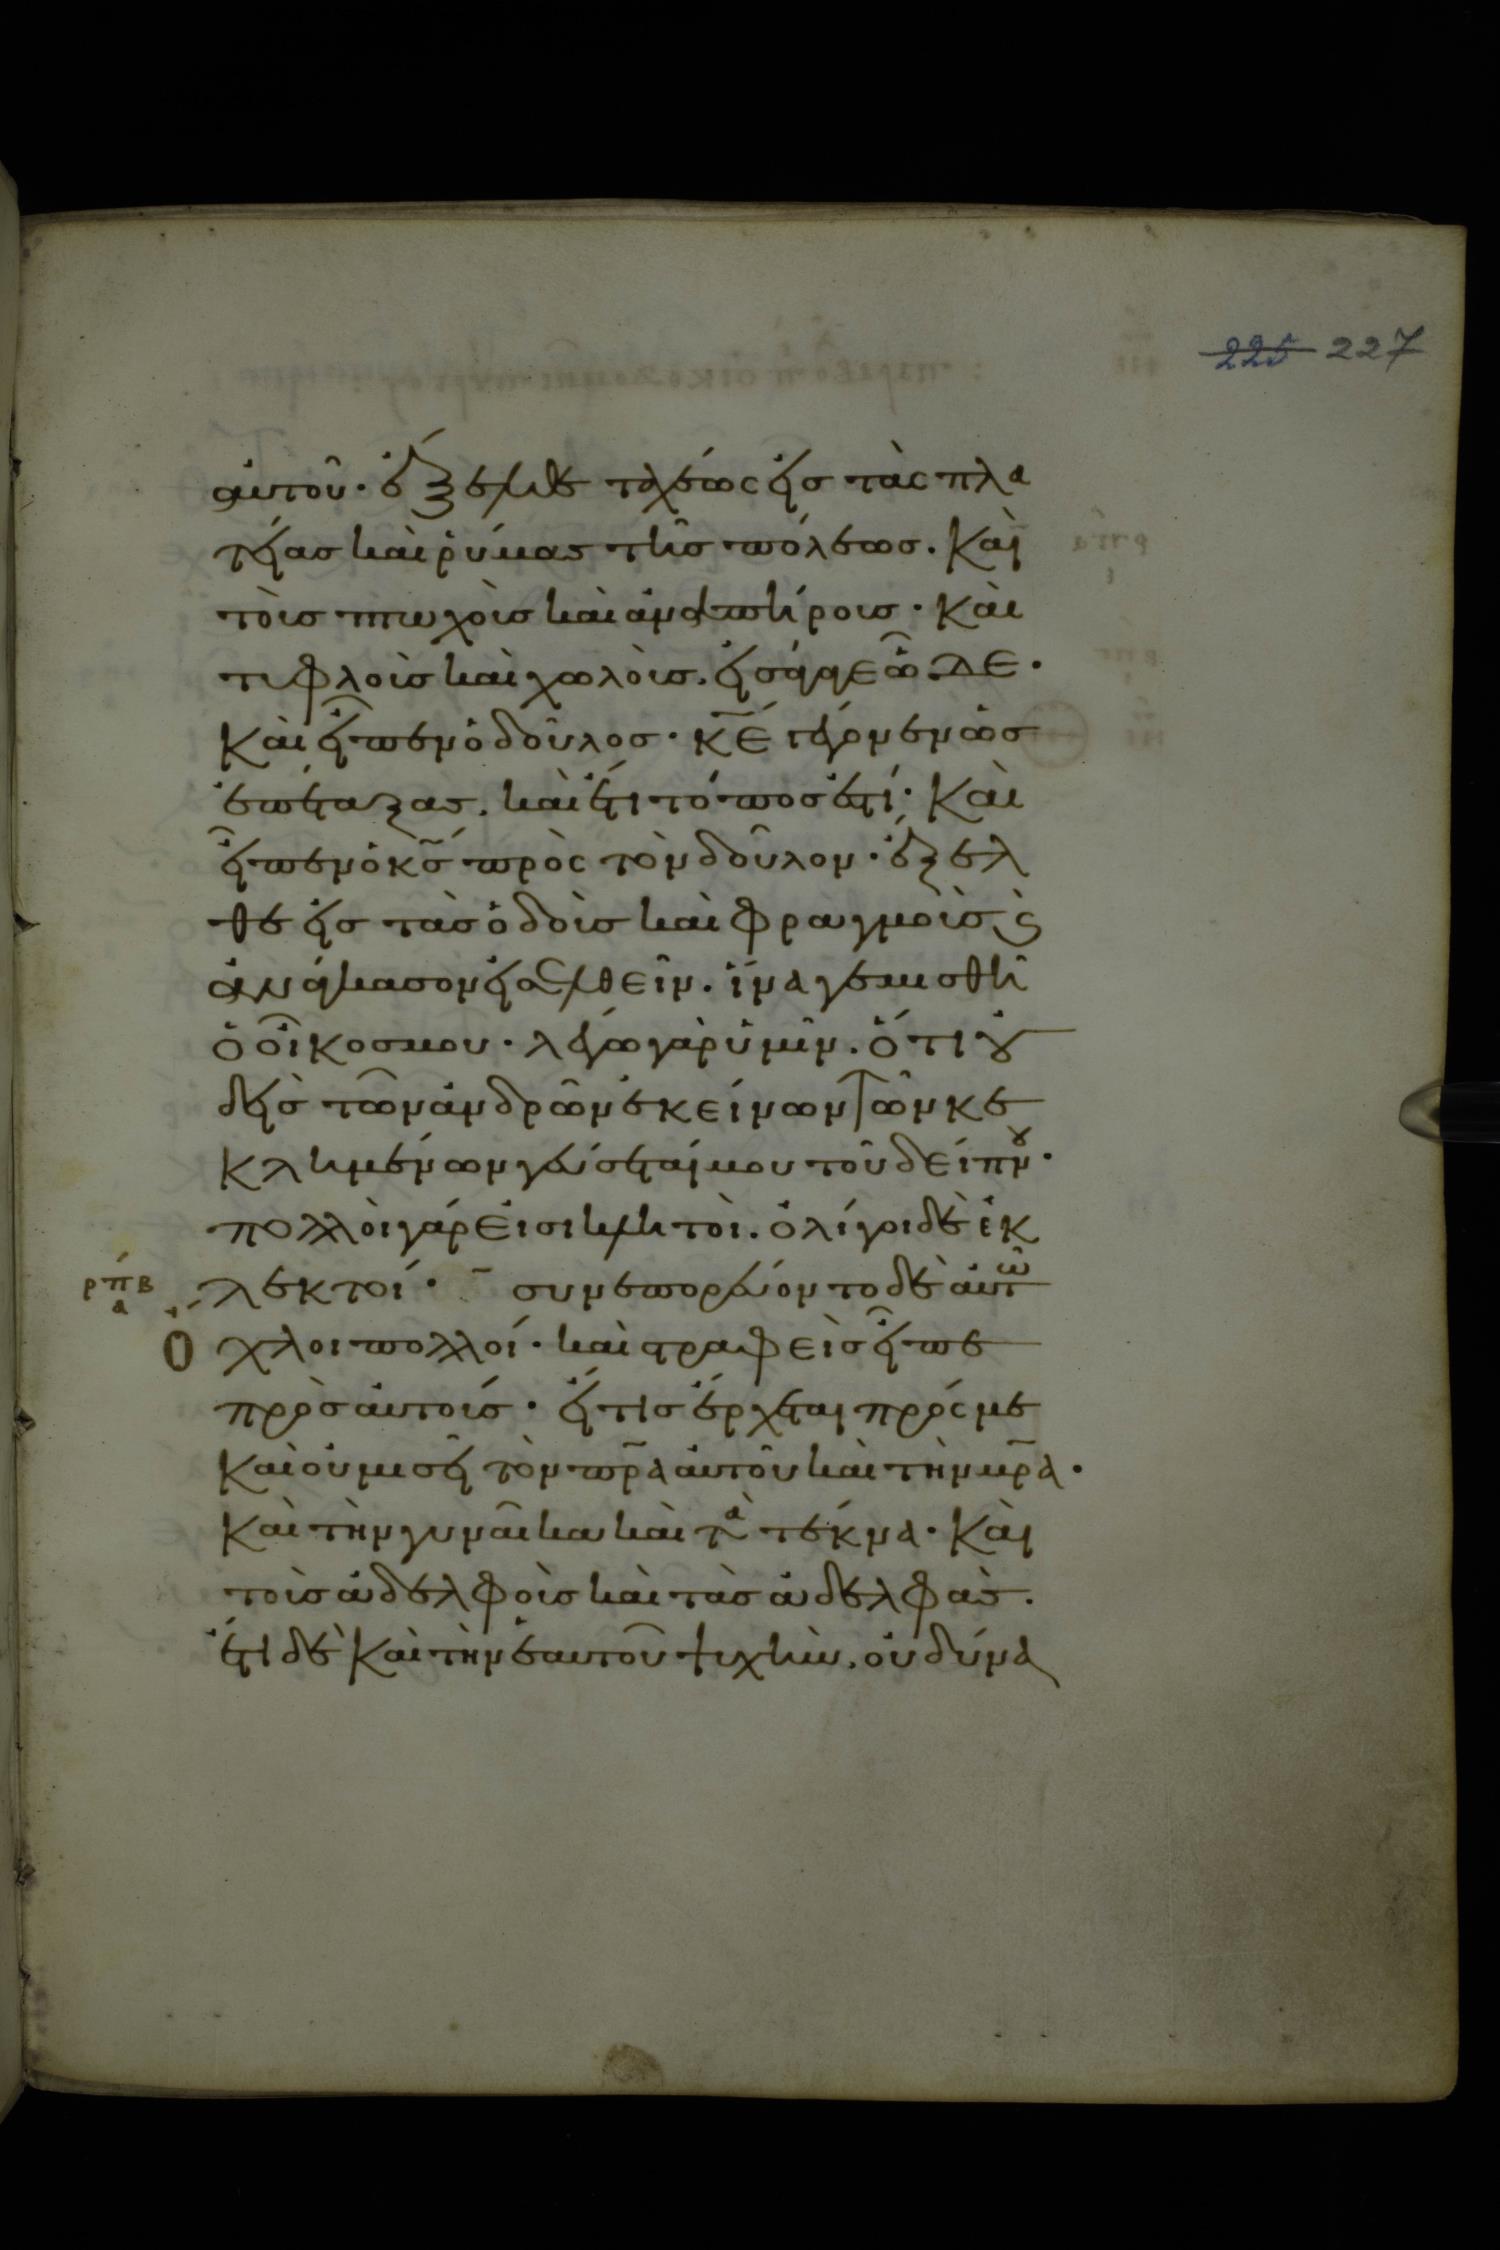 225 227
αὐτοῦ· ἔξελθε ταχέως εἰς τὰς πλα
τείας καὶ ῥύμας τῆς πόλεως. Καὶ
τοὺς πτωχοὺς καὶ ἀναπήρους· Καὶ
τυφλοὺς καὶ χωλοὺς. εἰσάγαγε ὧδε·
Καὶ εἶπεν ὁ δοῦλος· κ̅ε̅ γέγονεν ὡς
ἐπέταξας. καὶ ἔτι τόπος ἐστί· Καὶ
εἶπεν ὁ κ̅ς̅ πρὸς τὸν δοῦλον· ἔξελ
θε εἰς τὰς ὁδοὺς καὶ φραγμοὺς ϗ
ἀνάγκασον εἰσελθεῖν. ἵνα γεμισθῆ
ὁ οἶκος μου· λέγω γὰρ ὑμῖν. ὅτι οὐ
δεὶς τῶν ἀνδρῶν ἐκείνων τῶν κε
κλημένων γεύσεταί μου τοῦ δείπνου·
πολλοὶ γάρ εἰσι κλητοὶ. ὀλίγοι δὲ ἐκ
ρπβ α λεκτοί· συνεπορεύοντο δὲ αὐτῶ
Ὄχλοι πολλοί· καὶ στραφεὶς εἶπε
πρὸς αὐτούς· εἴ τις ἔρχεται πρός με
Καὶ οὐ μισεῖ τὸν π̅ρ̅α αὐτοῦ καὶ τὴν μ̅ρ̅α·
Καὶ τὴν γυναῖκα καὶ τὰ τέκνα· Καὶ
τοὺς ἀδελφοὺς καὶ τὰς ἀδελφὰς.
ἔτι δὲ Καὶ τὴν ἑαυτοῦ ψυχὴν. οὐ δύνα